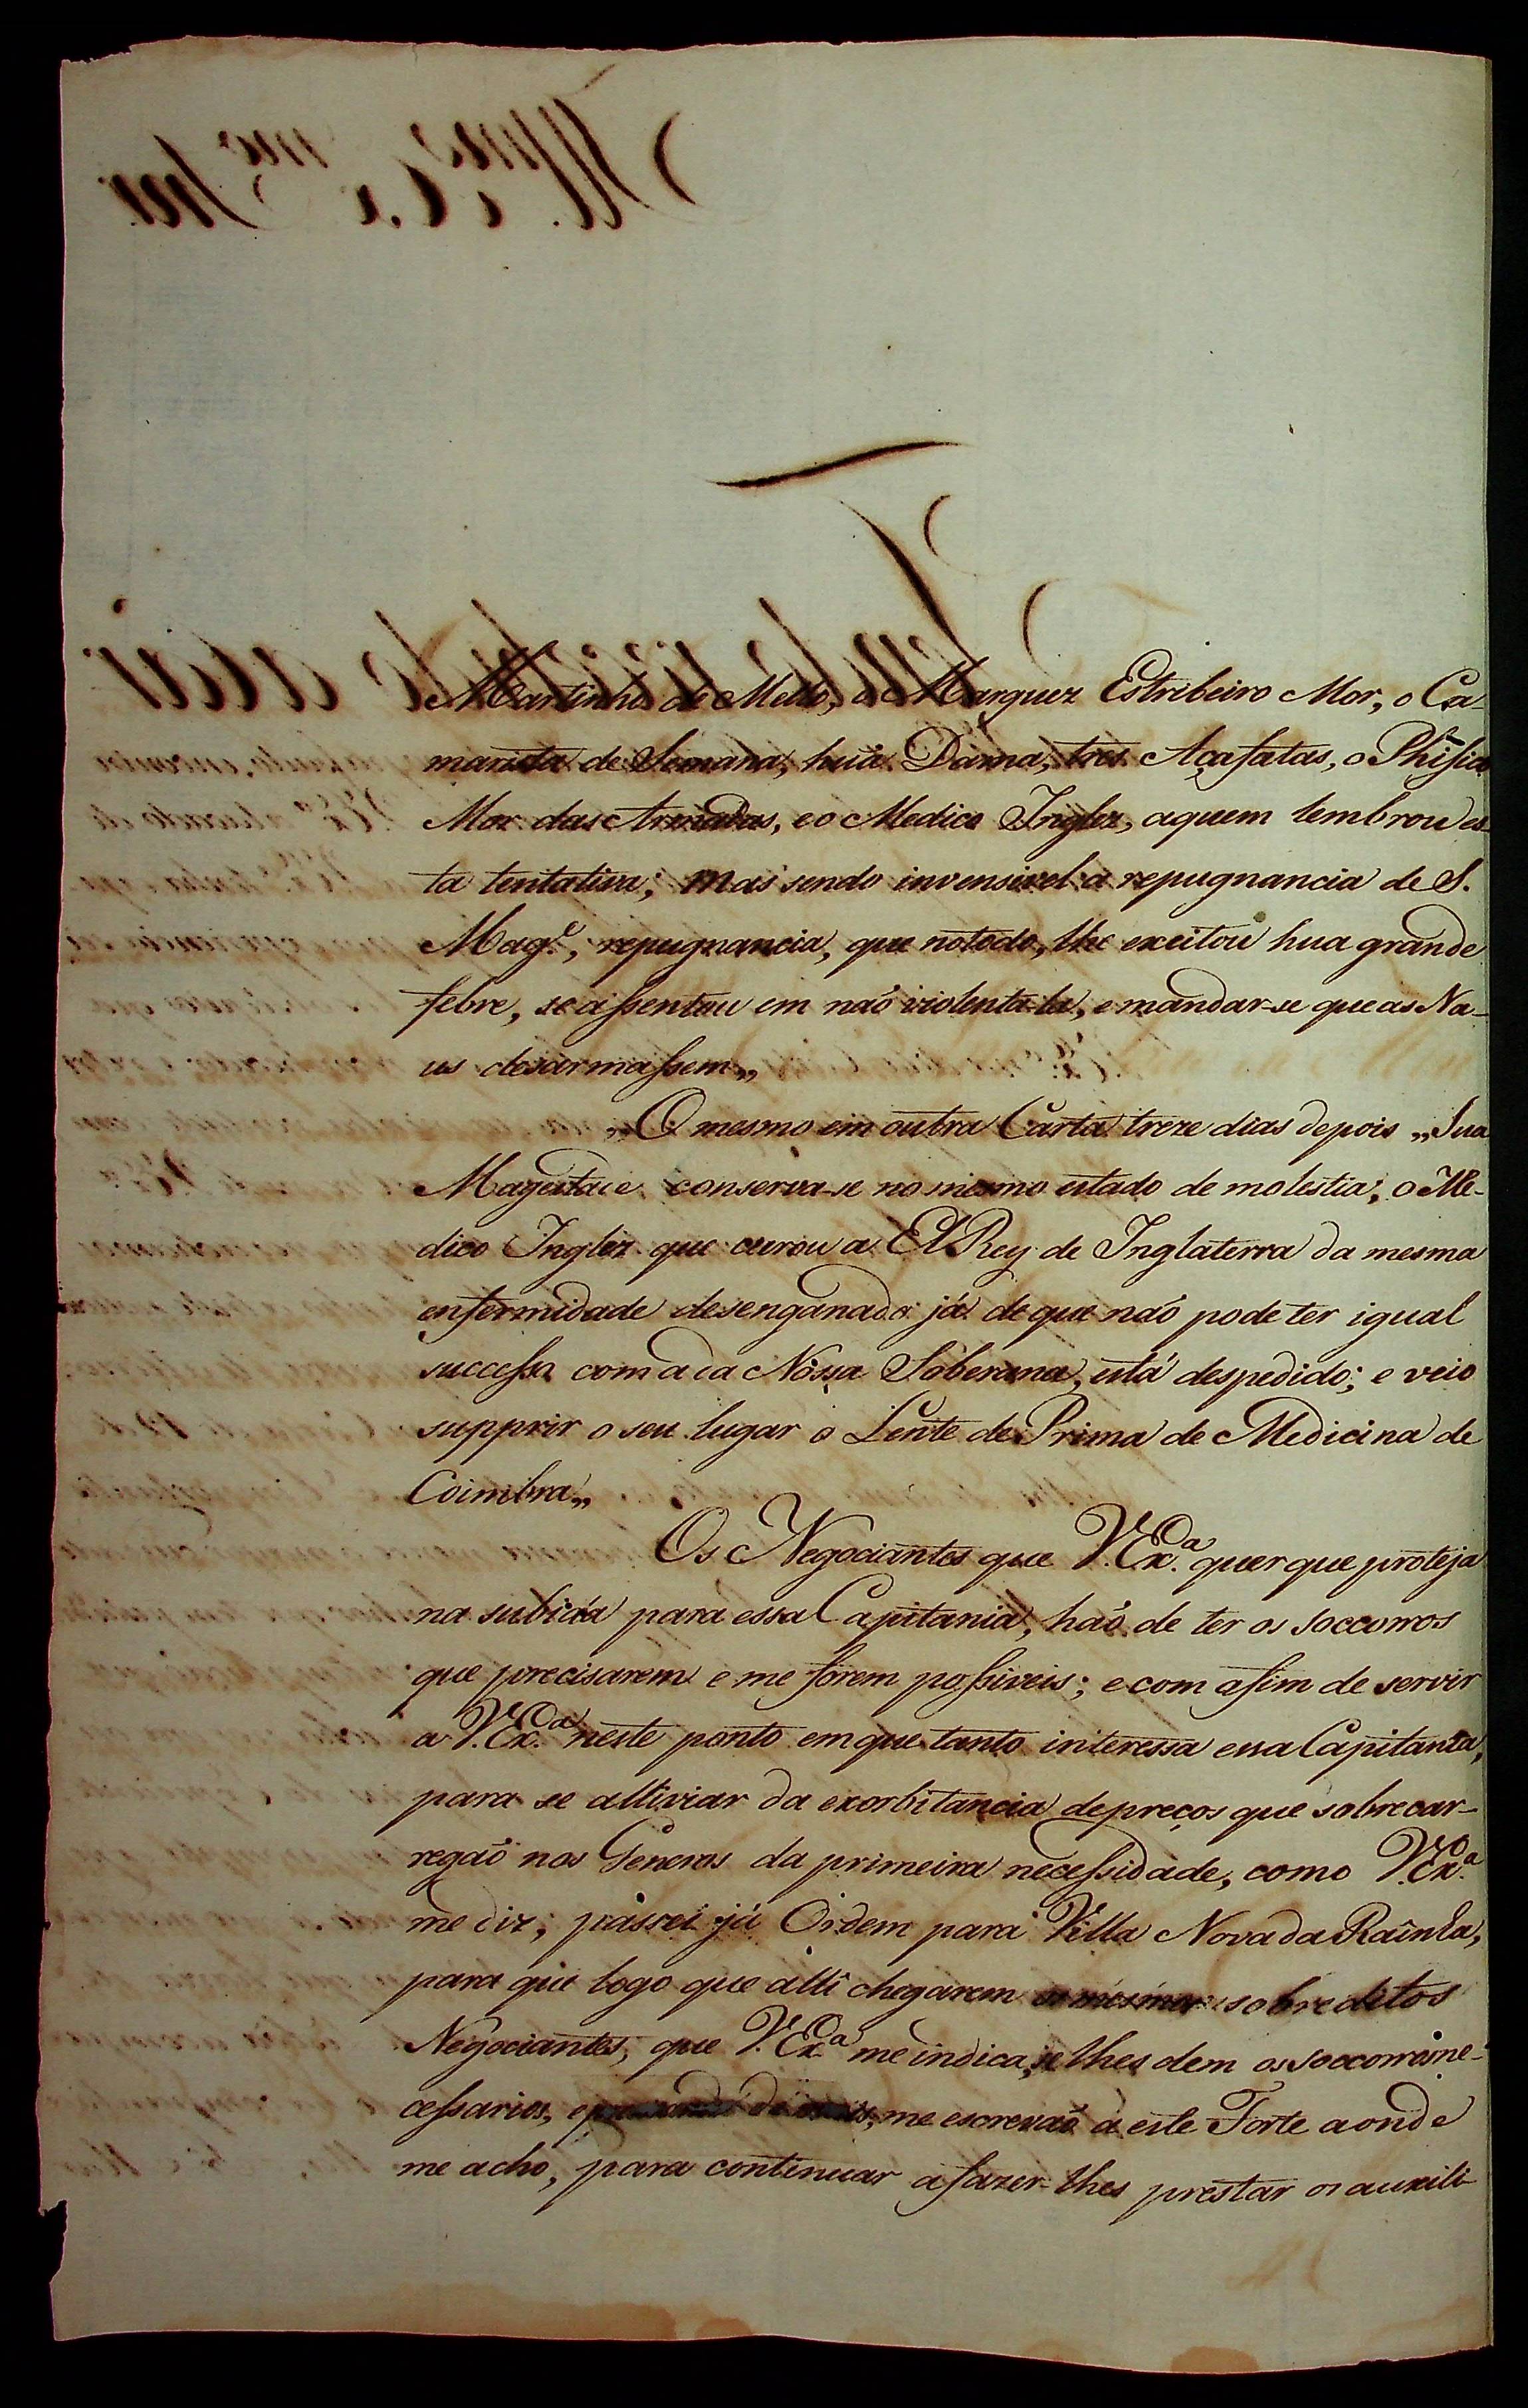 Martinho de Mello, o Marquez Estribeiro Mor, o Ca-
marista de Semana, huã Dama, tres Açafatas, o Phisico
Mor das Armadas, e o Medico Inglez, aquem lembrou es-
ta tentativa; mas sendo invensivel a repugnancia de S.
Mag.e, repugnancia, que notedo, lhe excitou hua grande
febre, se assentou em naõ violenta-la, e mandar-se que as Na-
us desarmassem„
„O mesmo em outra Carta treze dias depois „Sua
Magestade conserva-se no mesmo estado de molestia; o Me-
dico Inglez que curou a El Rey de Inglaterra da mesma
enfermidade desenganado já de que naõ pode ter igual
successo com a da Nossa Soberana, está despedido; e veio
supprir o seu lugar o Lente de Prima de Medicina de
Coimbra„
Os Negociantes que V. Ex.a quer que proteja
na subida para essa Capitania, haõ de ter os soccorros
que precisarem e me forem possiveis; e com afim de servir
a V. Ex.a neste ponto em que tanto interessa essa Capitania,
para se alliviar da exorbitancia de preços que sobrecar-
regaõ nos Generos da primeira necessidade, como V. Ex.a
me diz; passei já Ordem para Villa Nova da Raînha,
para que logo que alli chegarem sobreditos
Negociantes, que V. Ex.a me indica, se lhes dem os soccorros ne-
cessarios, e me escrevaõ a este Forte aonde
me acho, para continuar a fazer-lhes prestar os auxili-